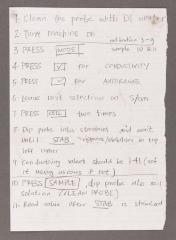 1. Clean the probe with DI water
2. Turn machine on
3 PRESS [MODE]
4 PRESS [✓] for CONDUCTIVITY
5 PRESS [✓] for
6 Leave unit selection on S/cm
7 PRESS two times
8 Dip probe into standard and wait
until STAB appears in top
left corner
9 Conductivity value should be 1.41 (set
it using arrows if not)
10 PRESS [SAMPLE], dip probe into soil
solution (CLEAN PROBE)
11. Read value after STAB is